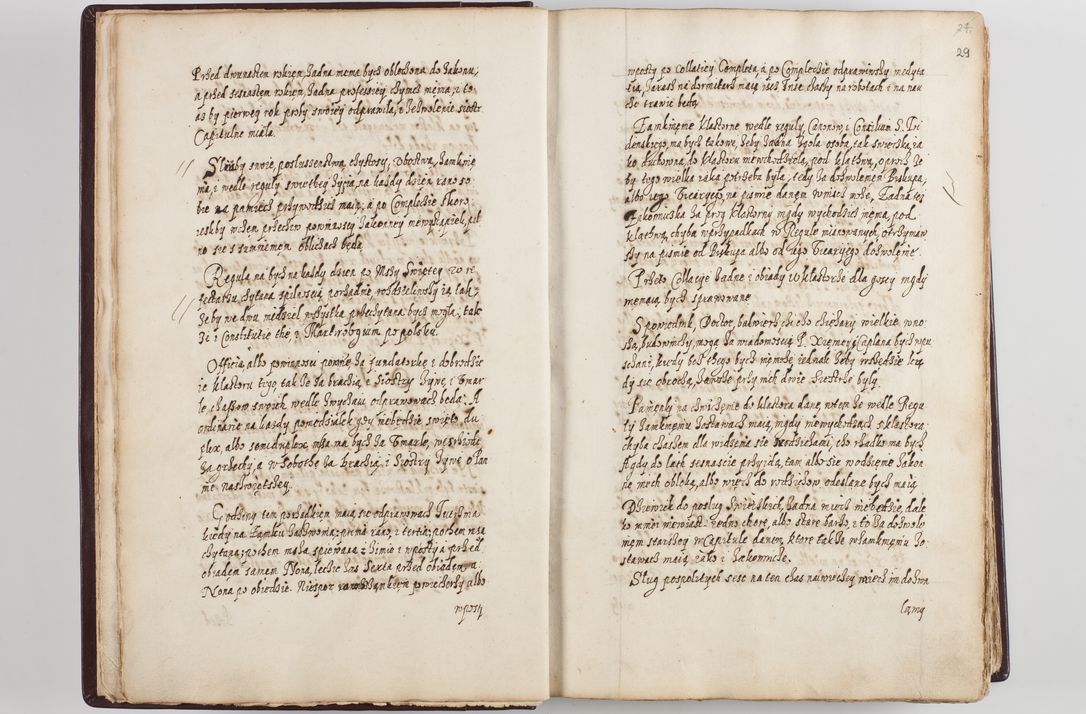 Przed dwunastem rokiem żadna niema bydź obłoczona do zakonu,
a przed szesnastem rokiem, żadna professiey czynić niema, i to
aż by pierwey rok proby swoiey odprawiła, i zezwolenie siostr
Capitulne miała.
Sluby swoie, posłuszenstwa, czystosci, ubostwa, zamknie
nia, i wedle reguły swiętey życia, na każdy dzień rano so
bie na pamięć przywodzić maią, a po Complecie skoro
ieśliby w czem przeciw powinności zakonney
no się z sumnieniem obliczać będą
Reguła ma bydź na każdy dzień po Mszy Świętey w re
fectarzu, czytana z pilnością porządnie rozdzieliwszy ią tak
żeby we dwu niedziel wszystka przeczytana bydź mogła, tak
że i Constitucie the, i Martirologium po polsku.
Officia, albo powinności powinne za fundatorkę i dobrodzie
ie klasztoru tego, także za bracią, i Siostry żywe, i umar
łe, czasow swoich wedle zwyczaiu odprawować będą. A
ordinarie na każdy poniedziałek gdy nie będzie święto du
plex, albo semiduplex, msza ma bydź za umarłe, we srzodę
za grzechy, a w sobotę za bracią, i Siostry żywe o Pan
nie naświętszey.
Godziny tem porządkiem maią się odprawować Jutrznia
kiedy na zamku zadzwonią; prima rano, i tertia; potem msza
czytana; potem msza śpiewana; w zimie i w posty a przed
obiadem samem Nona, lecie zaś Sexta przed obiadem, a
Nona po obiedzie. Nieszpor zamkiem po wieczorzy albo
w posty
27.
29
w posty po collatiey Completa, a po Complecie odprawiwszy medyta
tią, zaraz na dormitarz maią iść. Insze czasy na robotach i na nau
ce trawić będą
Zamknienie klasztorne wedle reguły, Canonow i Concilium S. Tri
denskiego, ma bydź takowe, żeby żadna zgoła osoba, tak swiecka, ia
ko duchowna, do klasztoru nie wchodziła, pod klątwą, oprocz że
by tego wielka iaka potrzeba była, tedy za dozwoleniem Biskupa,
albo iego Vicaryego, na piśmie danem wniść może, Żadna też
Zakonniczka za prog klasztorny nigdy wychodzić niema, pod
klątwą, chyba w przypadkach w Regule mianowanych, otrzymaw
szy na piśmie od Biskupa albo od iego Vicaryego dozwolenie.
Przeto collacije żadne i obiady w klasztorze dla gości nigdy
niemaią bydź sprawowane
Spowiednik, Doctor, balwierz, ci co ciężary wielkie wno
szą, budowniczy, mogą za wiadomością P. Xieniey i Caplana bydź wpu
szczani, kiedy bez tego bydź niemoże iednak żeby wszędzie kie
dy się obrocą, zawsze przy nich dwie Siostrze były.
Panienki na cwiczenie do klasztora dane, w tem że wedle Regu
ły zamknieniu zostawać maią, nigdy niewychodząc z klasztora
chyba czasem dla widzenia się z rodzicami, co rzadko ma bydź
A gdy do lat szesnaście przyidą, tam albo się w odzienie zakon
ne niech obłoką, albo więc do rodzicow odesłane bydź maią
Dziewek do posług Swieckich, żadna mieć nie będzie, dale
ko mniey niewiast. Jedno chore, albo stare bardzo, i to za dozwole
niem starszey w Capitule danem, ktore także w zamknieniu zo
stawać maią iako i zakonniczki.
Sług pospolitych sześć na ten czas nawięcey mieć im dozwa
lamy